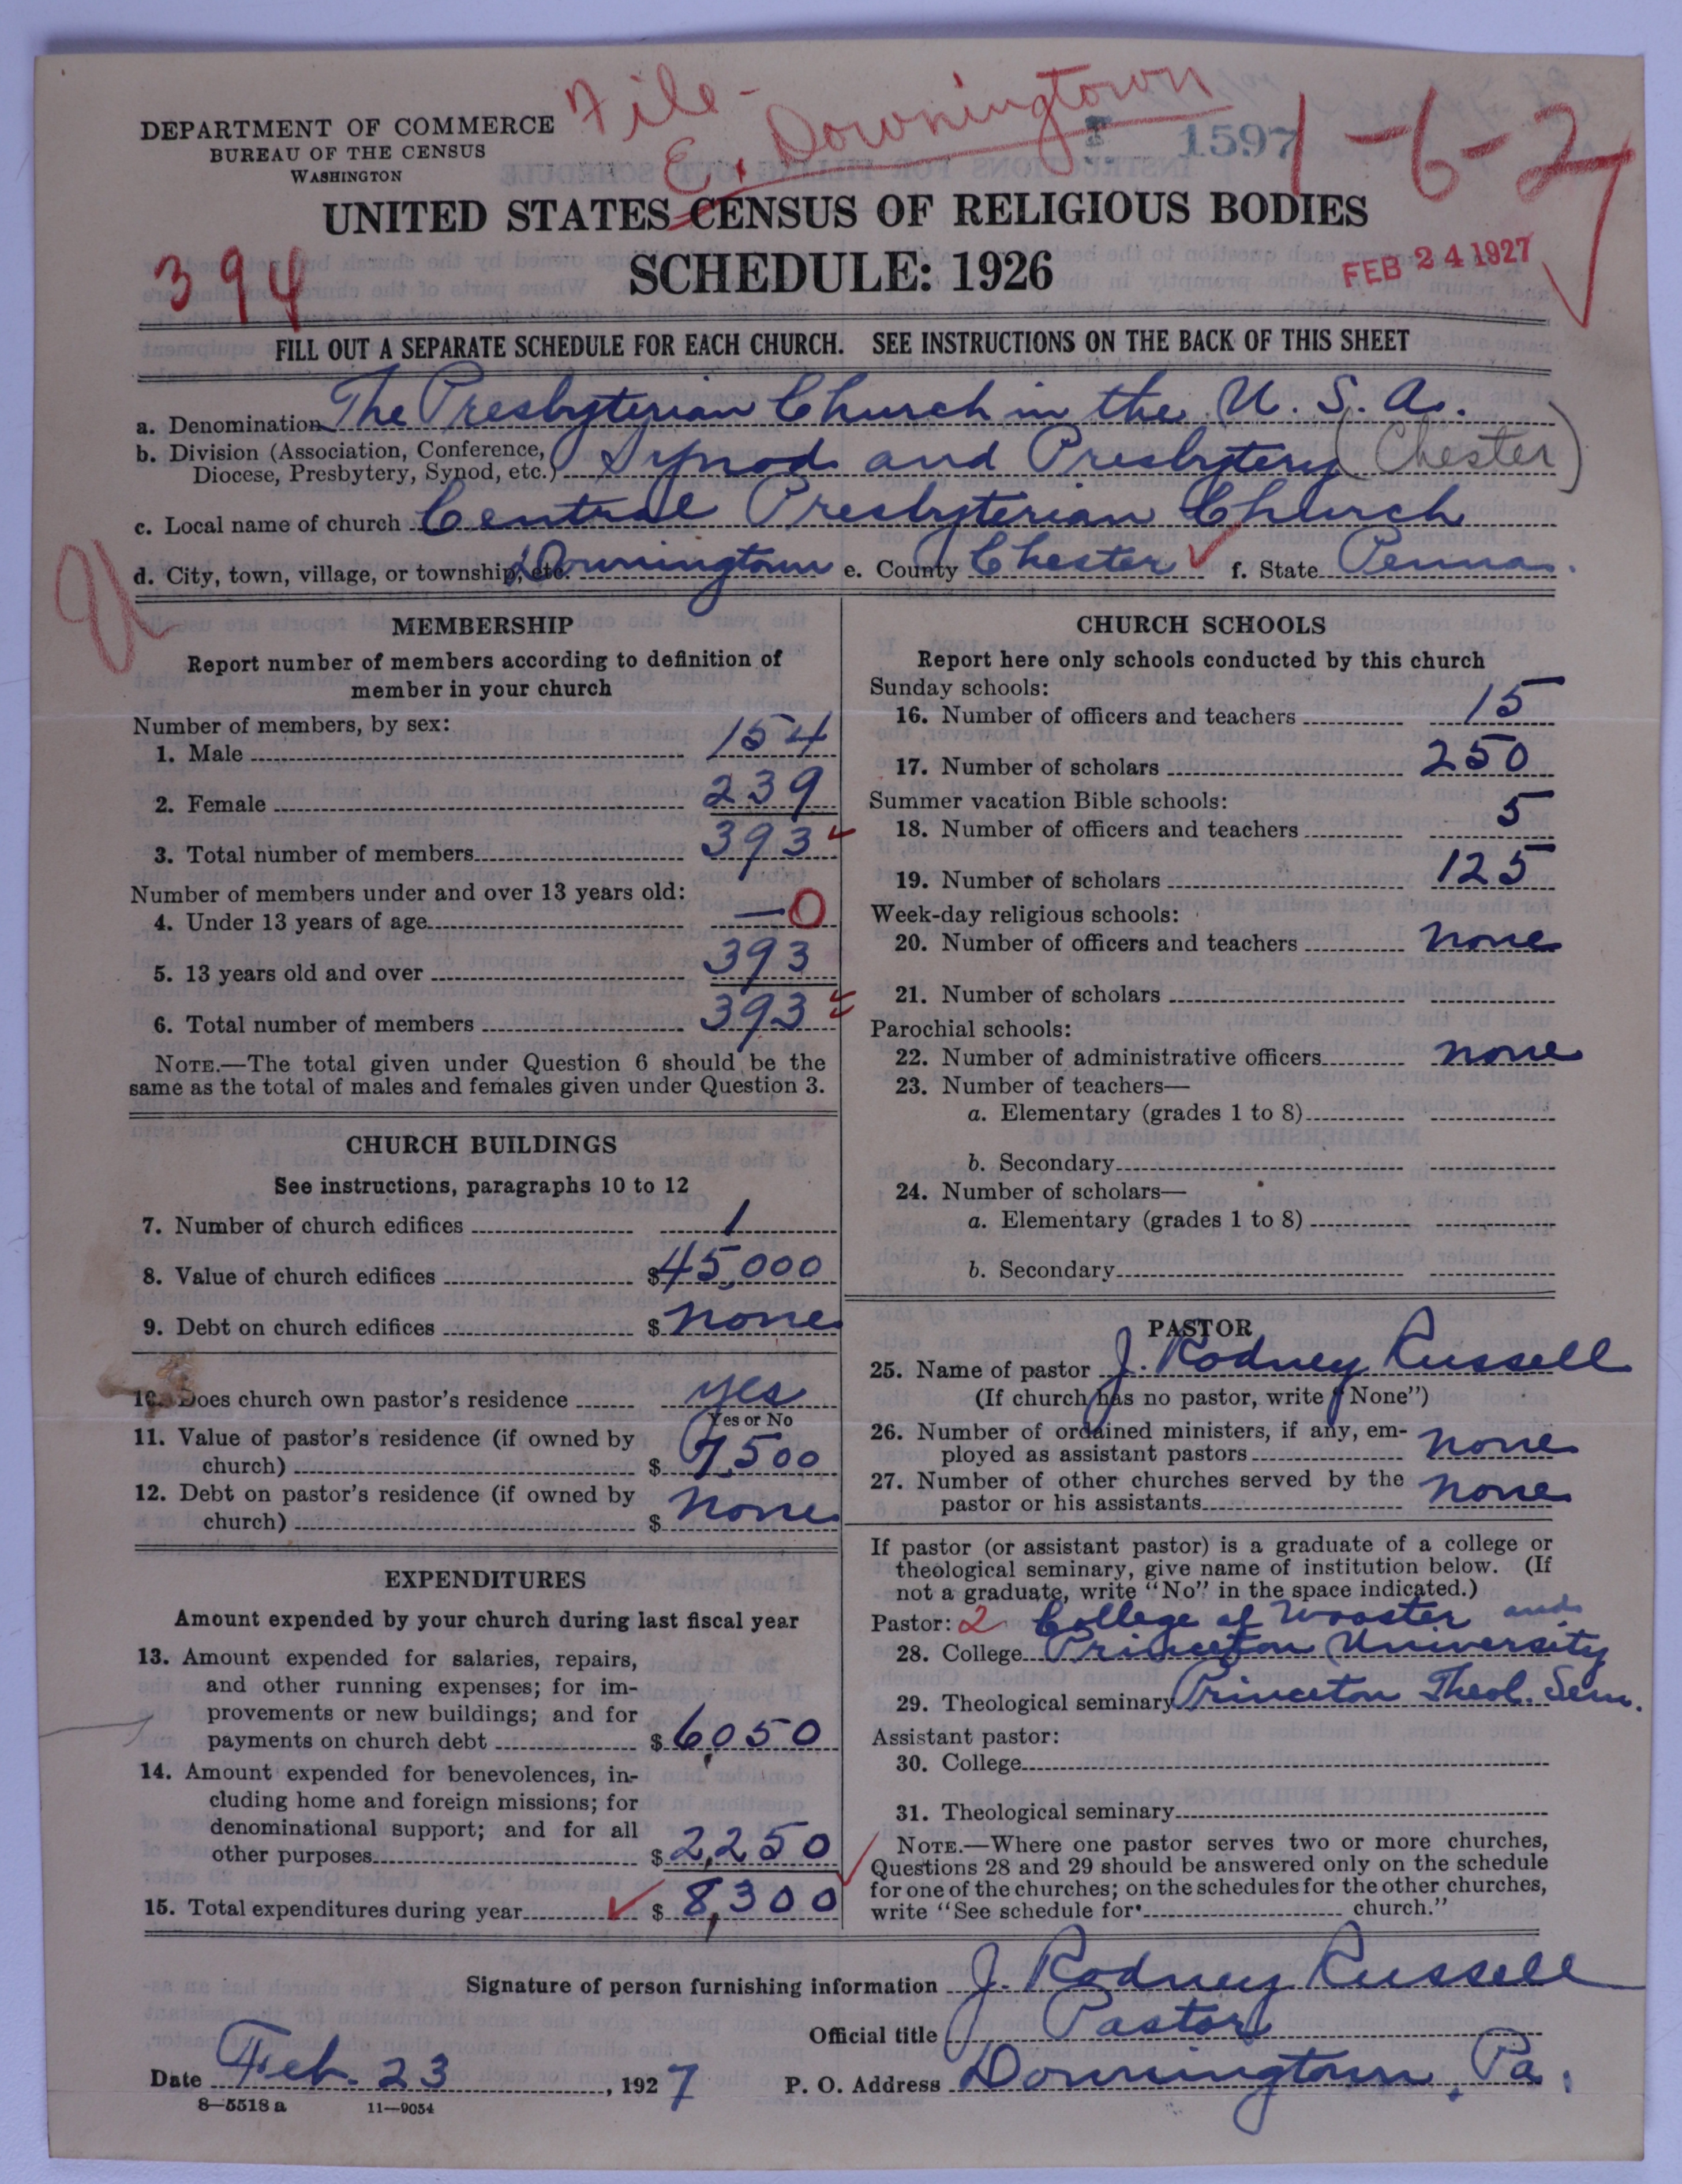 File-
E. Downingtown
1-6-27
T 1597
DEPARTMENT OF COMMERCE
BUREAU OF THE CENSUS
WASHINGTON
UNITED STATES CENSUS OF RELIGIOUS BODIES
SCHEDULE: 1926
394
FEB 24 1927
FILL OUT A SEPARATE SCHEDULE FOR EACH CHURCH. SEE INSTRUCTIONS ON THE BACK OF THIS SHEET
a. Denomination The Presbyterian Church in the U. S. A.
b. Division (Association, Conference,
Diocese, Presbytery, Synod, etc.) Synod and Presbytery (Chester)
c. Local name of church Central Presbyterian Church
d. City, town, village, or township, etc. Downingtown e. County Chester f. State Penna.
MEMBERSHIP
Report number of members according to definition of
member in your church
Number of members, by sex:
1. Male 154
2. Female 239
3. Total number of members 393
Number of members under and over 13 years old:
4. Under 13 years of age — 0
5. 13 years old and over 393
6. Total number of members 393
NOTE.—The total given under Question 6 should be the
same as the total of males and females given under Question 3.
CHURCH BUILDINGS
See instructions, paragraphs 10 to 12
7. Number of church edifices 1
8. Value of church edifices $45,000
9. Debt on church edifices $ none
10. Does church own pastor's residence yes
Yes or No
11. Value of pastor's residence (if owned by
church) $ 7,500
12. Debt on pastor's residence (if owned by
church) $ none
EXPENDITURES
Amount expended by your church during last fiscal year
13. Amount expended for salaries, repairs,
and other running expenses; for im-
provements or new buildings; and for
payments on church debt $ 6,050
14. Amount expended for benevolences, in-
cluding home and foreign missions; for
denominational support; and for all
other purposes $ 2,250
15. Total expenditures during year $ 8,300
CHURCH SCHOOLS
Report here only schools conducted by this church
Sunday schools:
16. Number of officers and teachers 15
17. Number of scholars 250
Summer vacation Bible schools:
18. Number of officers and teachers 5
19. Number of scholars 125
Week-day religious schools:
20. Number of officers and teachers none
21. Number of scholars
Parochial schools:
22. Number of administrative officers none
23. Number of teachers—
a. Elementary (grades 1 to 8)
b. Secondary
24. Number of scholars—
a. Elementary (grades 1 to 8)
b. Secondary
PASTOR
25. Name of pastor J. Rodney Russell
(If church has no pastor, write "None")
26. Number of ordained ministers, if any, em-
ployed as assistant pastors none
27. Number of other churches served by the
pastor or his assistants none
If pastor (or assistant pastor) is a graduate of a college or
theological seminary, give name of institution below. (If
not a graduate, write "No" in the space indicated.)
Pastor: 2 College of Wooster and
28. College Princeton University
29. Theological seminary Princeton Theol. Sem.
Assistant pastor:
30. College
31. Theological seminary
NOTE.—Where one pastor serves two or more churches,
Questions 28 and 29 should be answered only on the schedule
for one of the churches; on the schedules for the other churches,
write "See schedule for church."
Signature of person furnishing information J. Rodney Russell
Official title Pastor
Date Feb. 23, 1927 P. O. Address Downingtown, Pa.
8—5518 a 11—9054